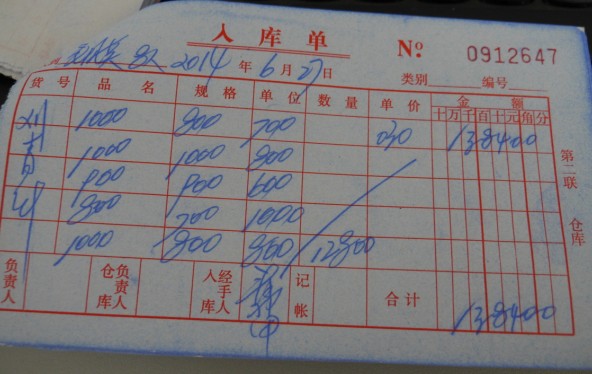 入库单 № 0912647
2014年6月27日 类别 编号
货号 品名 规格 单位 数量 单价 金额
十万千百十元角分
1000 800 700 030 138400
1000 1000 800
600
800 700 1000
1000 800 800 12800
负责人 仓库负责人 入库经手人 记帐 合计 138400
第二联 仓库